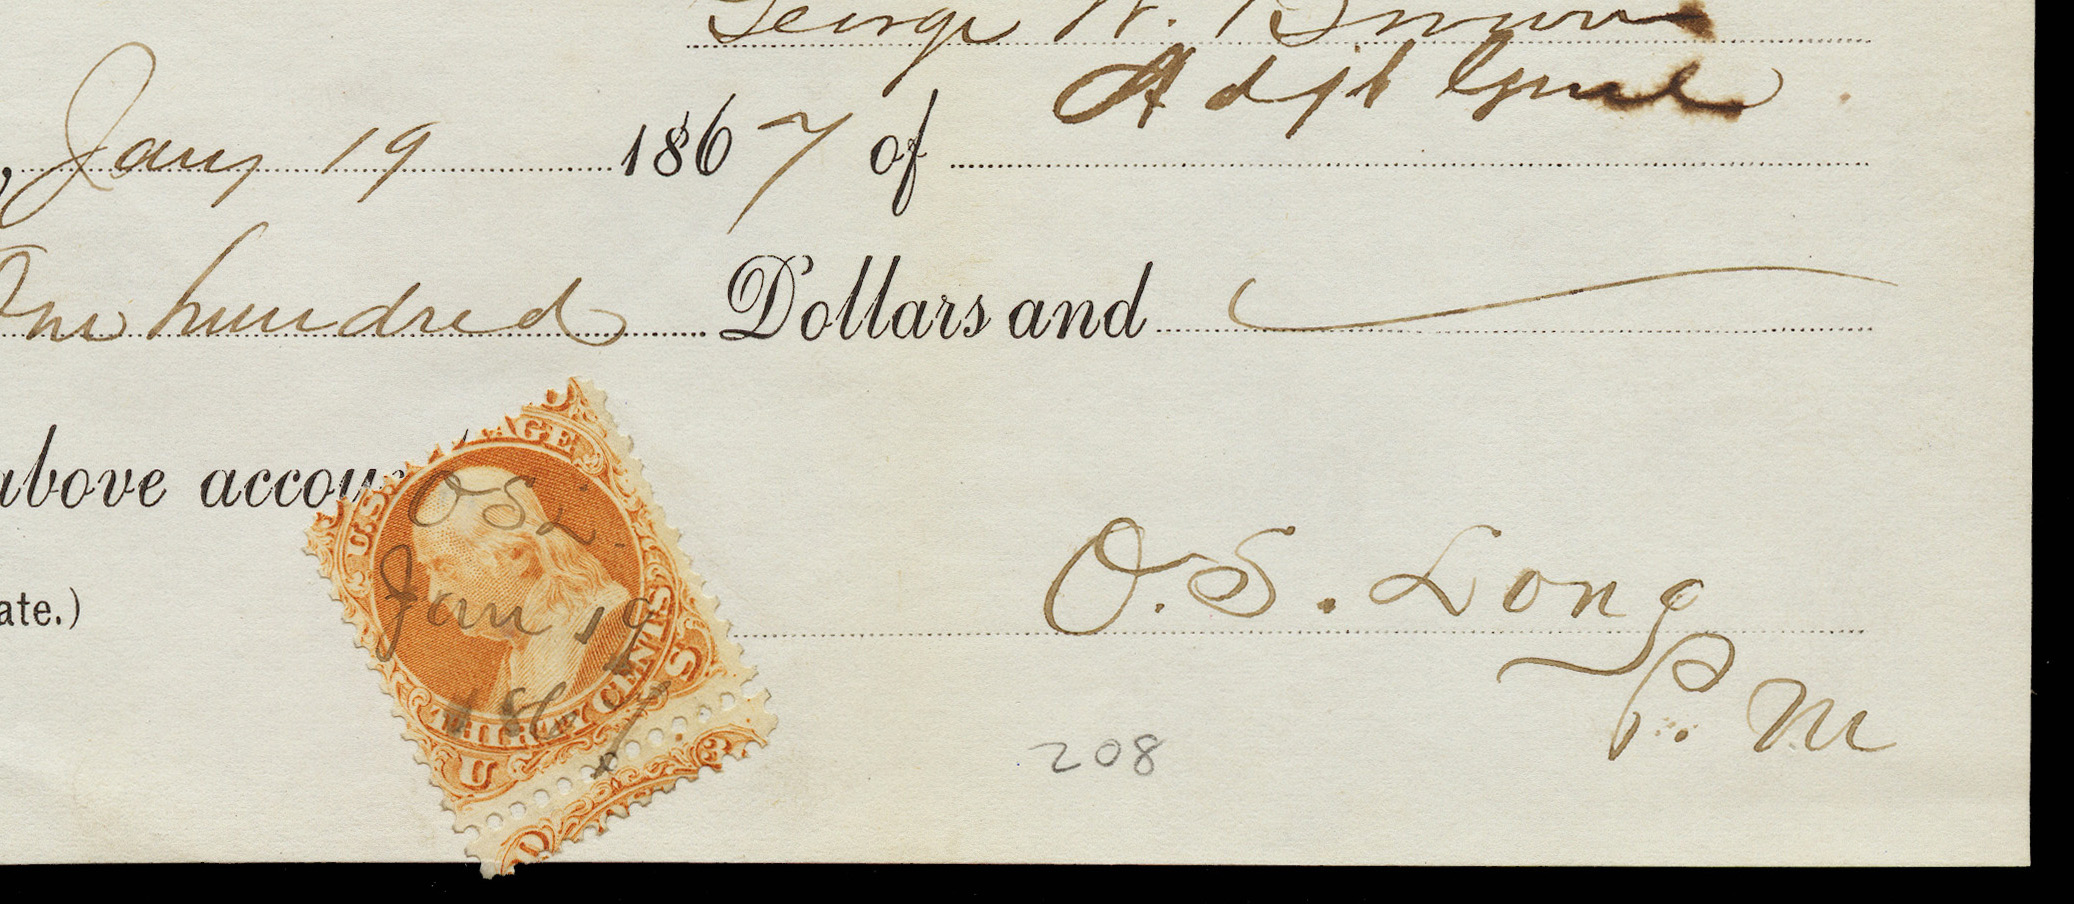 George W. Brown
Adjt Genl
, Jany 19 1867 of
One hundred Dollars and
above accou
ate.)
U.S. AGE
THIRTY CENTS
U S
O S L.
Jan 19
1867
O. S. Long
P. M
208